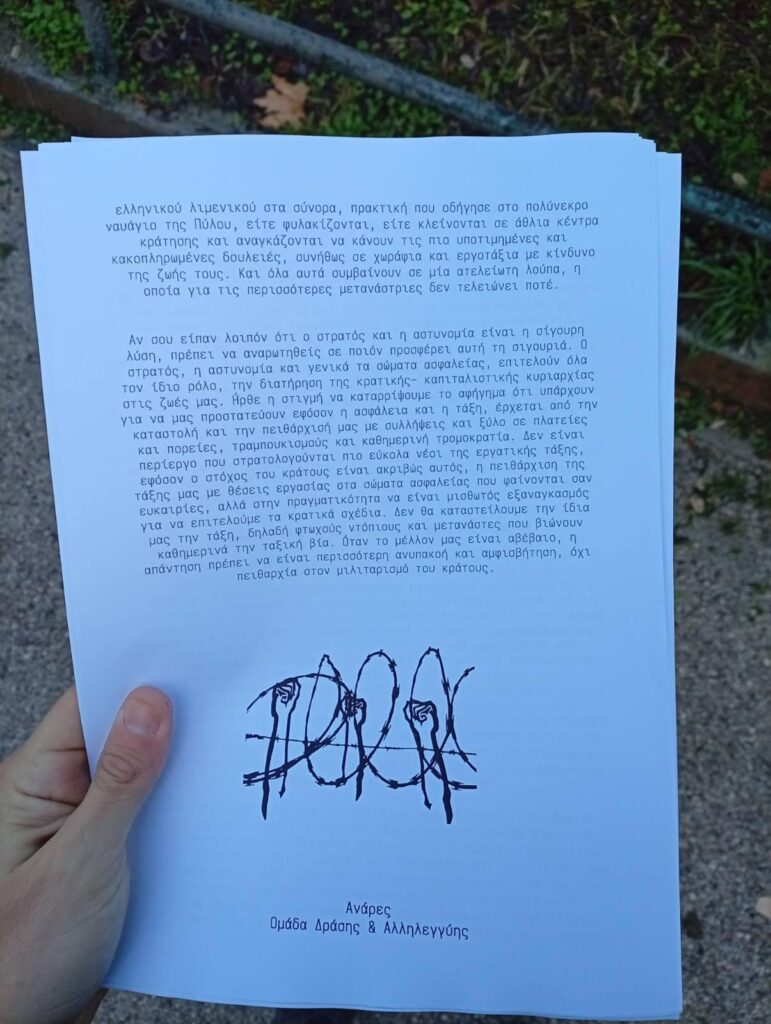 ελληνικού λιμενικού στα σύνορα, πρακτική που οδήγησε στο πολύνεκρο
ναυάγιο της Πύλου, είτε φυλακίζονται, είτε κλείνονται σε άθλια κέντρα
κράτησης και αναγκάζονται να κάνουν τις πιο υποτιμημένες και
κακοπληρωμένες δουλειές, συνήθως σε χωράφια και εργοτάξια με κίνδυνο
της ζωής τους. Και όλα αυτά συμβαίνουν σε μία ατελείωτη λούπα, η
οποία για τις περισσότερες μετανάστριες δεν τελειώνει ποτέ.
Αν σου είπαν λοιπόν ότι ο στρατός και η αστυνομία είναι η σίγουρη
λύση, πρέπει να αναρωτηθείς σε ποιόν προσφέρει αυτή τη σιγουριά. Ο
στρατός, η αστυνομία και γενικά τα σώματα ασφαλείας, επιτελούν όλα
τον ίδιο ρόλο, την διατήρηση της κρατικής- καπιταλιστικής κυριαρχίας
στις ζωές μας. Ήρθε η στιγμή να καταρρίψουμε το αφήγημα ότι υπάρχουν
για να μας προστατεύουν εφόσον η ασφάλεια και η τάξη, έρχεται από την
καταστολή και την πειθάρχισή μας με συλλήψεις και ξύλο σε πλατείες
και πορείες, τραμπουκισμούς και καθημερινή τρομοκρατία. Δεν είναι
περίεργο που στρατολογούνται πιο εύκολα νέοι της εργατικής τάξης,
εφόσον ο στόχος του κράτους είναι ακριβώς αυτός, η πειθάρχιση της
τάξης μας με θέσεις εργασίας στα σώματα ασφαλείας που φαίνονται σαν
ευκαιρίες, αλλά στην πραγματικότητα να είναι μισθωτός εξαναγκασμός
για να επιτελούμε τα κρατικά σχέδια. Δεν θα καταστείλουμε την ίδια
μας την τάξη, δηλαδή φτωχούς ντόπιους και μετανάστες που βιώνουν
καθημερινά την ταξική βία. Όταν το μέλλον μας είναι αβέβαιο, η
απάντηση πρέπει να είναι περισσότερη ανυπακοή και αμφισβήτηση, όχι
πειθαρχία στον μιλιταρισμό του κράτους.
Ανάρες
Ομάδα Δράσης & Αλληλεγγύης